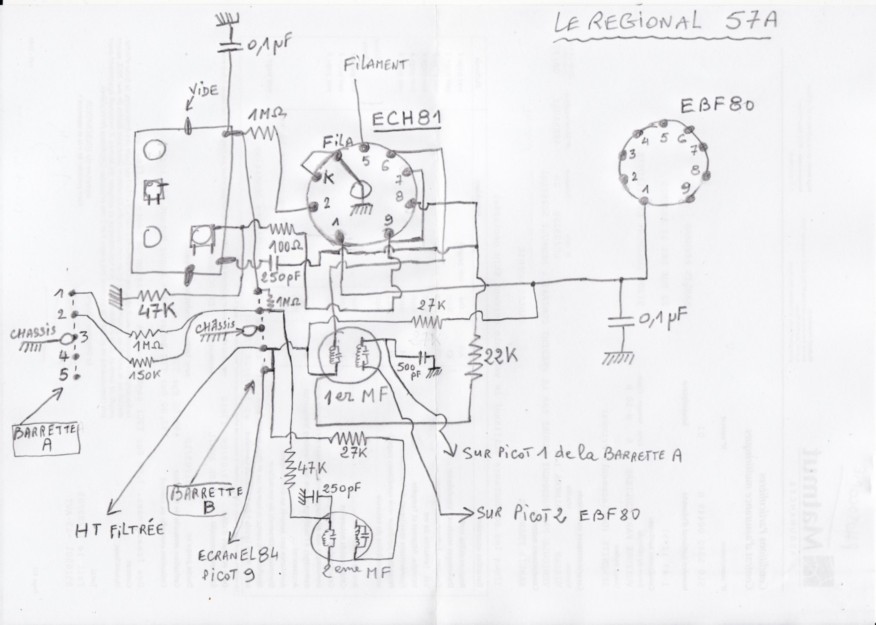 LE REGIONAL 57A
0,1µF
FILAMENT
VIDE
1MΩ
ECH81
EBF80
FILA
5
6
K
7
2
8
1
9
4
5
6
3
7
2
8
1
9
100Ω
250pF
1
47K
1MΩ
27K
0,1µF
2
CHASSIS
3
CHÂSSIS
1MΩ
4
150K
5
500
pF
22K
1er MF
BARRETTE
A
27K
SUR PICOT 1 de la BARRETTE A
47K
BARRETTE
B
250pF
HT FILTRÉE
SUR PICOT 2 EBF80
ECRAN EL84
PICOT 9
2eme MF